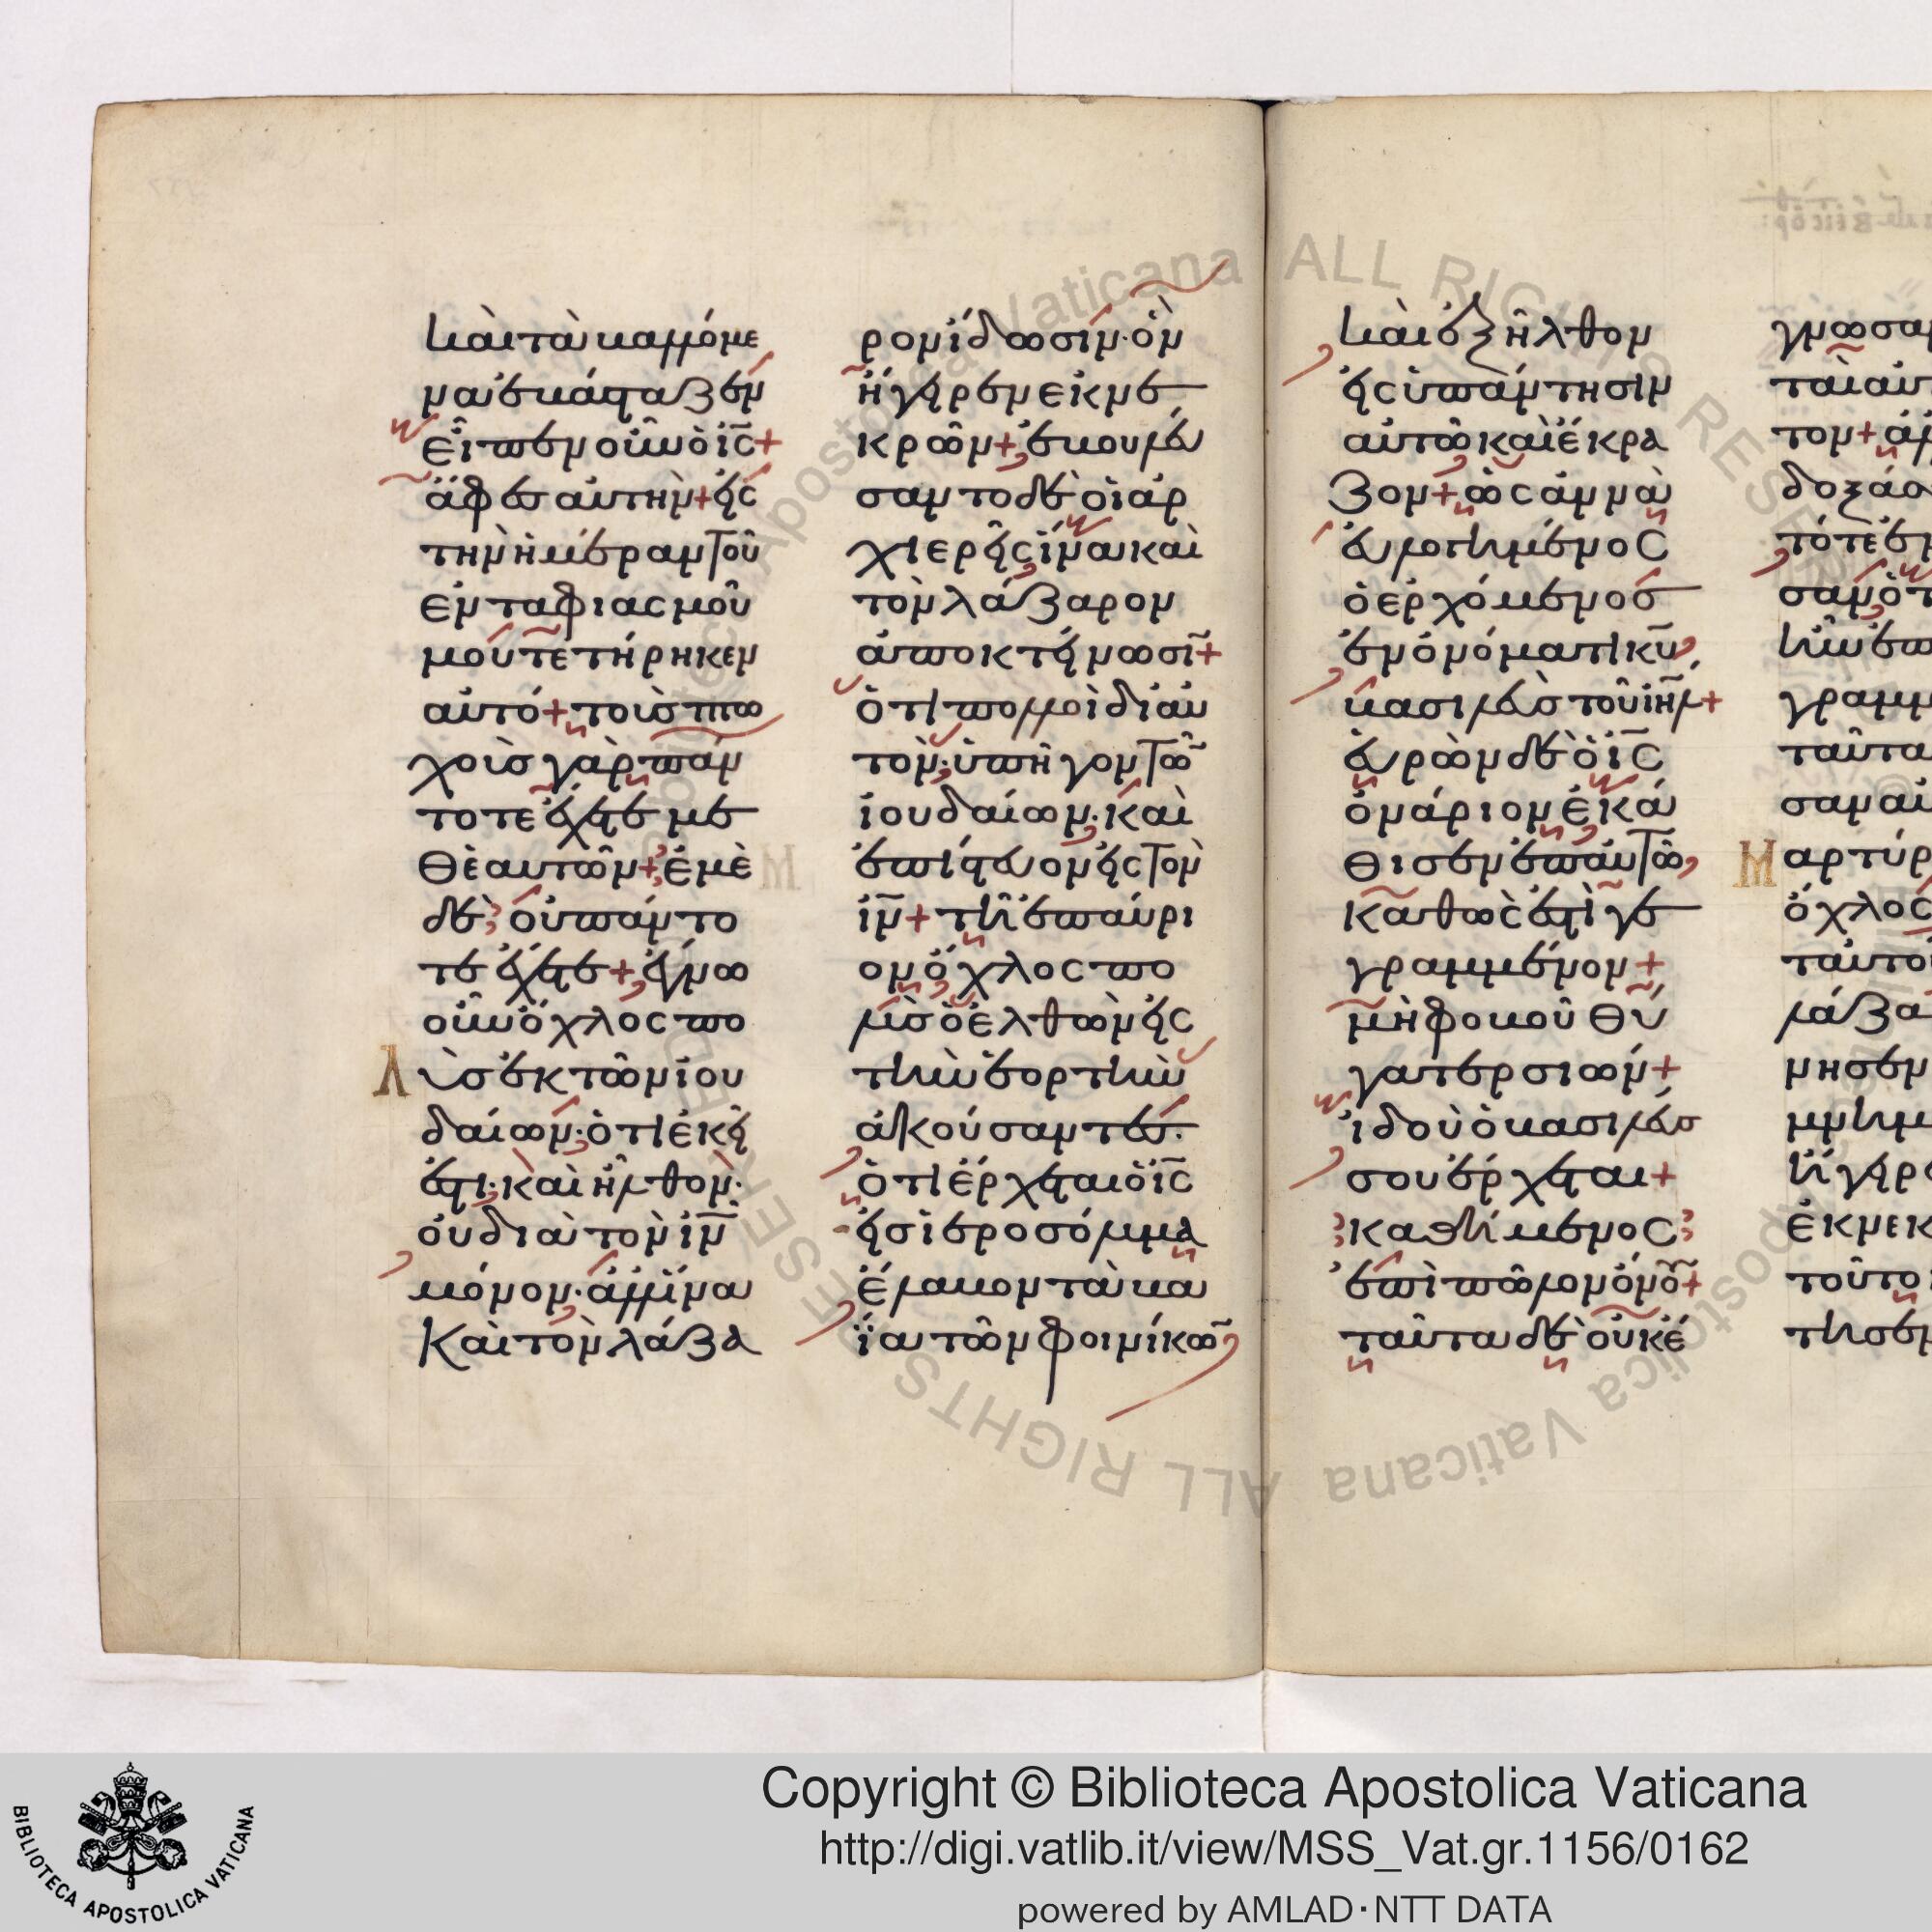 καὶ τὰ βαλλόμε
να ἐβάσταζεν
εἶπεν οὖν ὁ ις+
ἄφες αὐτήν+ εἰς
τὴν ἡμέραν τοῦ
ἐνταφιασμοῦ
μου τετήρηκεν
αὐτό+ τοὺς πτω
χοὺς γὰρ πάν
τοτε ἔχετε με
θ' ἑαυτῶν+ ἐμὲ
δὲ οὐ πάντο
τε ἔχετε+ ἔγνω
οὖν ὄχλος πο
λὺς ἐκ τῶν ἰου
δαίων· ὅτι ἐκεῖ
ἐστι· καὶ ἦλθον·
οὐ διὰ τὸν ιν
μόνον· ἀλλ' ἵνα
καὶ τὸν λάζα
ρον ἴδωσιν· ὃν
ἤγειρεν ἐκ νε
κρῶν+ ἐβουλεύ
σαντο δὲ οἱ ἀρ
χιερεῖς ἵνα καὶ
τὸν λάζαρον
ἀποκτείνωσι+
ὅτι πολλοὶ δι' αὐ
τὸν· ὑπῆγον τῶ
ἰουδαίων· καὶ
ἐπίστευον εἰς τὸν
ιν+ τῆ ἐπαύρι
ον ὄχλος πο
λὺς ὁ ἐλθὼν εἰς
τὴν ἑορτὴν
ἀκούσαντες·
ὅτι ἔρχεται ὁ ις
εἰς ἱεροσόλυμα
ἔλαβον τὰ βα
ΐα τῶν φοινίκω
καὶ ἐξῆλθον
εἰς ὑπάντησιν
αὐτῶ καὶ ἔκρα
ζον+ ὡσαννὰ
εὐλογημένος
ὁ ἐρχόμενος
ἐν ὀνόματι κυ
βασιλεὺς τοῦ ιηλ+
εὑρὼν δὲ ὁ ις
ὀνάριον ἐκά
θισεν ἐπ' αὐτῶ
καθώς ἐστι γε
γραμμένον+
μὴ φοβοῦ θύ
γατερ σιών+
ἰδοὺ ὁ βασιλεύς
σου ἔρχεται+
καθήμενος
ἐπὶ πῶλον ὄνου+
ταῦτα δὲ οὐκ ἔ
γνωσα
ται αὐτ
τον+
δοξάσ
τότε ἐ
σαν ὅτ
ἦν ἐπ
γραμμ
ταῦτα
σαν αὐ
Μαρτύρ
ὄχλος
ταύτο
λάζα
νησεν
μνημ
ἤγειρ
ἐκ νεκ
τοῦτο
τησεν
Copyright © Biblioteca Apostolica Vaticana
http://digi.vatlib.it/view/MSS_Vat.gr.1156/0162
powered by AMLAD·NTT DATA
BIBLIOTECA APOSTOLICA VATICANA